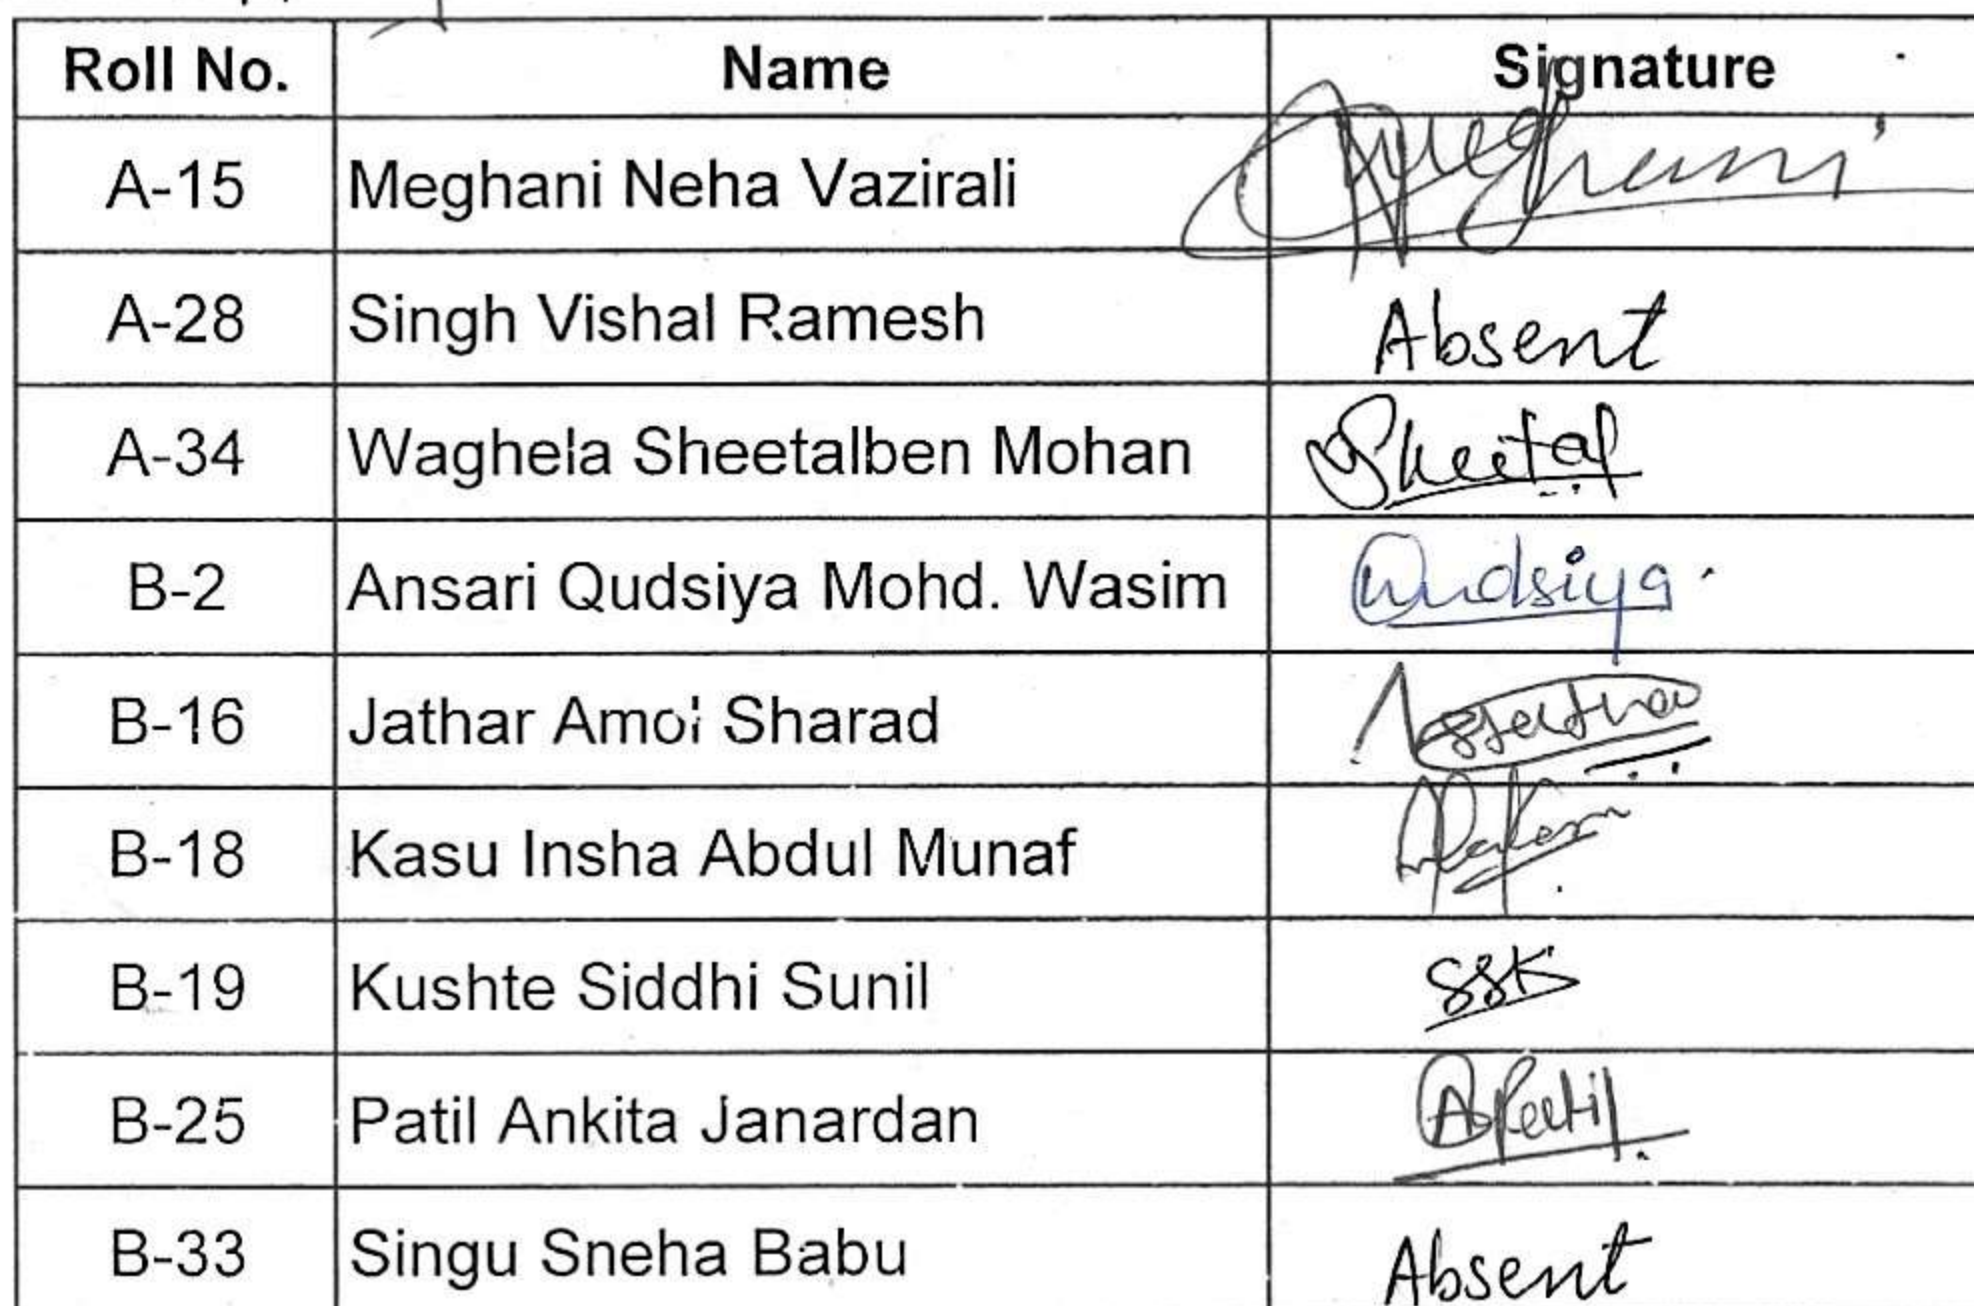 Roll No. Name Signature
A-15 Meghani Neha Vazirali Meghani
A-28 Singh Vishal Ramesh Absent
A-34 Waghela Sheetalben Mohan Sheetal
B-2 Ansari Qudsiya Mohd. Wasim Qudsiya.
B-16 Jathar Amol Sharad
B-18 Kasu Insha Abdul Munaf
B-19 Kushte Siddhi Sunil SSK
B-25 Patil Ankita Janardan APatil
B-33 Singu Sneha Babu Absent